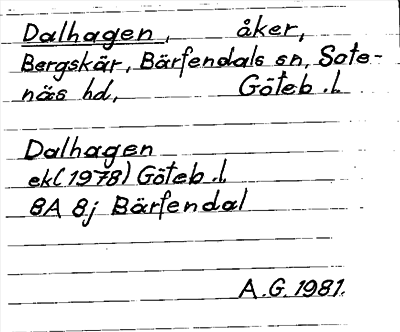 Dalhagen, åker,
Bergskär, Bärfendals sn, Sote-
näs hd, Göteb.l.
Dalhagen
ek(1978) Göteb.l.
8A 8j Bärfendal
A.G. 1981.